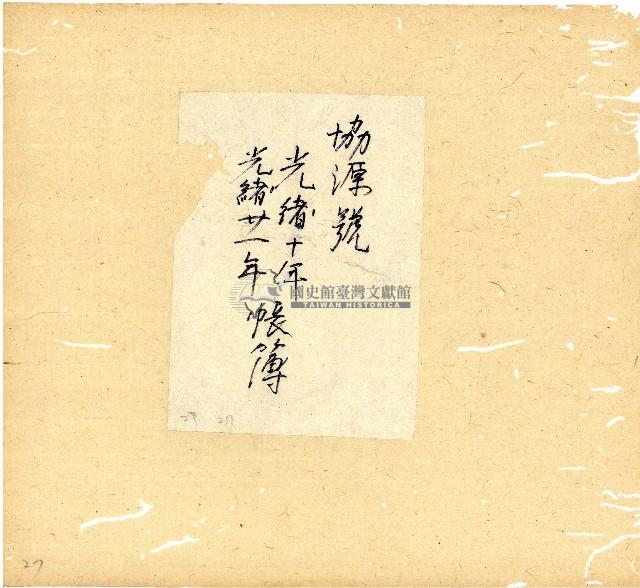 協源號
光緒十年
光緒廿一年
帳簿
國史館臺灣文獻館
TAIWAN HISTORICA
27 27
27